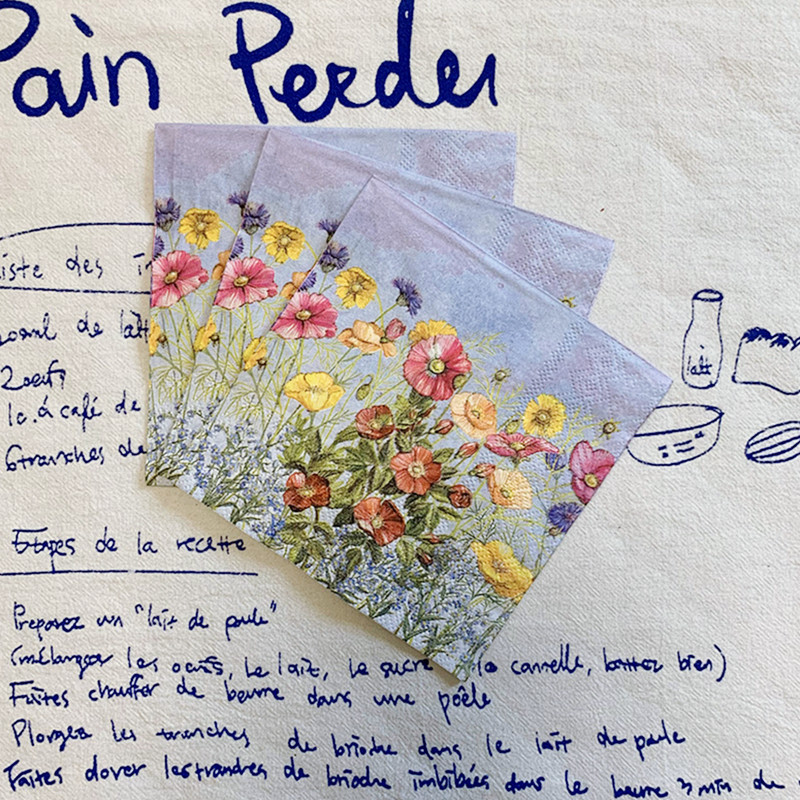 Pain Perdu
iste des
de lait
2 oeufs
1c. à café de
6 tranches de
lait
Etapes de la recette
Preparez un "lait de poule"
(mélangez les oeufs, le lait, le sucre la cannelle, battez bien)
Faites chauffer de beurre dans une poêle
Plongez les tranches de brioche dans le lait de poule
Faites dorer les tranches de brioche imbibées dans le beurre 3 min de